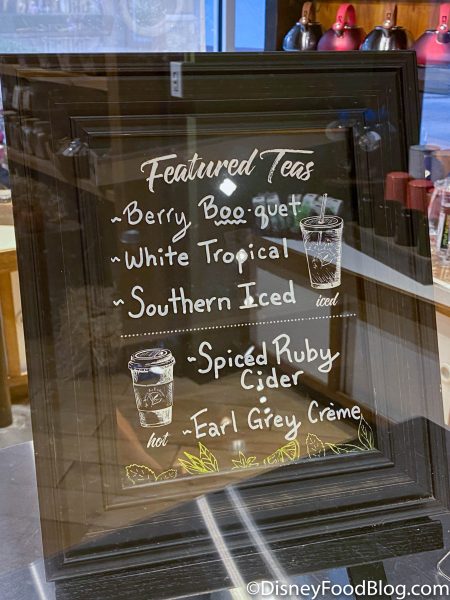 Featured Teas
~Berry Boo-quet
~White Tropical
~Southern Iced
iced
~Spiced Ruby
Cider
hot
~Earl Grey Crème
©DisneyFoodBlog.com